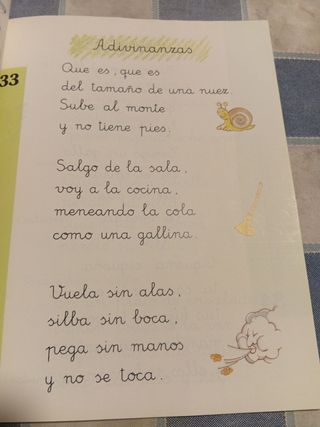 Adivinanzas
33
Que es, que es
del tamaño de una nuez
Sube al monte
y no tiene pies.
Salgo de la sala,
voy a la cocina,
meneando la cola
como una gallina.
Vuela sin alas,
silba sin boca,
pega sin manos
y no se toca.